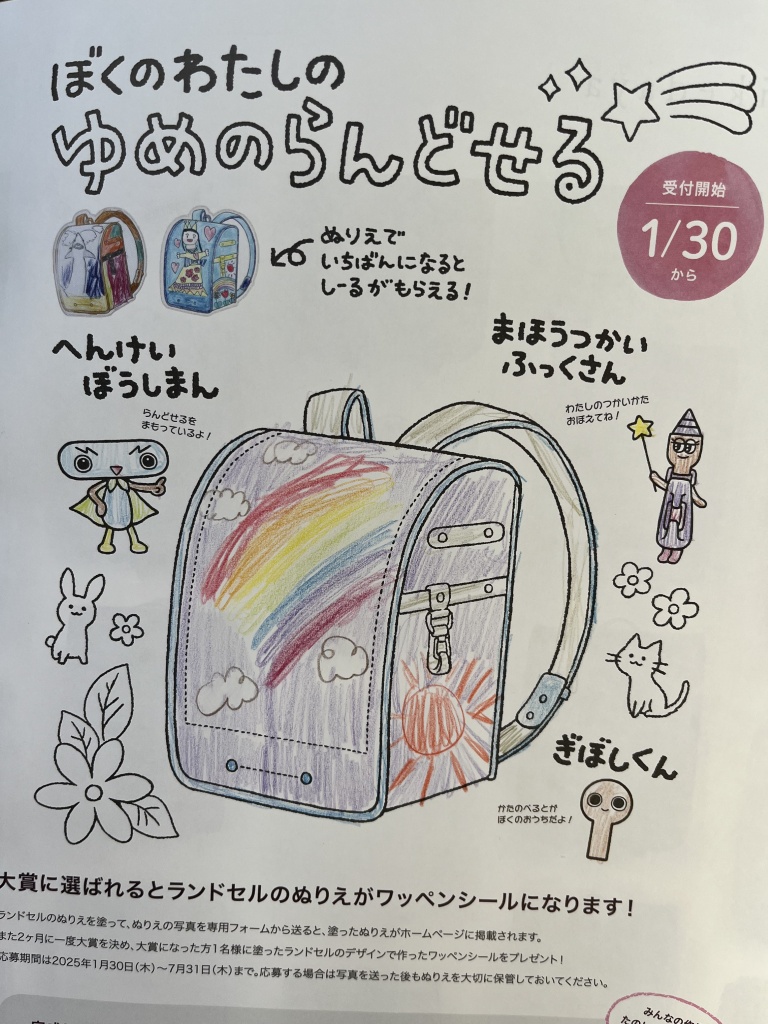 ぼくのわたしの
ゆめのらんどせる
受付開始
1/30
から
ぬりえで
いちばんになると
しーるがもらえる!
へんけい
ぼうしまん
らんどせるを
まもっているよ!
まほうつかい
ふっくさん
わたしのつかいかた
おぼえてね!
ぎぼしくん
かたのべるとが
ぼくのおうちだよ!
大賞に選ばれるとランドセルのぬりえがワッペンシールになります!
ランドセルのぬりえを塗って、ぬりえの写真を専用フォームから送ると、塗ったぬりえがホームページに掲載されます。
また2ヶ月に一度大賞を決め、大賞になった方1名様に塗ったランドセルのデザインで作ったワッペンシールをプレゼント!
応募期間は2025年1月30日(木)〜7月31日(木)まで。応募する場合は写真を送った後もぬりえを大切に保管しておいてください。
みんなの